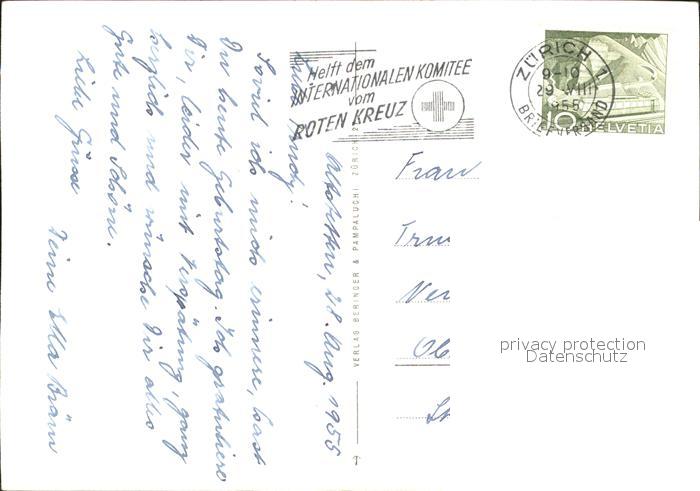 Altstetten, 28. Aug. 1955
Soviel ich mich erinnere, hast
Du heute Geburtstag. Ich gratuliere
Dir, leider mit Verspätung, ganz
herzlich und wünsche Dir alles
Gute und Schöne.
Liebe Grüsse
Deine Ella Bräm
VERLAG BERINGER & PAMPALUCHI ZÜRICH
Helft dem
INTERNATIONALEN KOMITEE
vom
ROTEN KREUZ
ZÜRICH 1
9-10
29 VIII
1955
BRIEFVERSAND
10 HELVETIA
Frau
privacy protection
Datenschutz